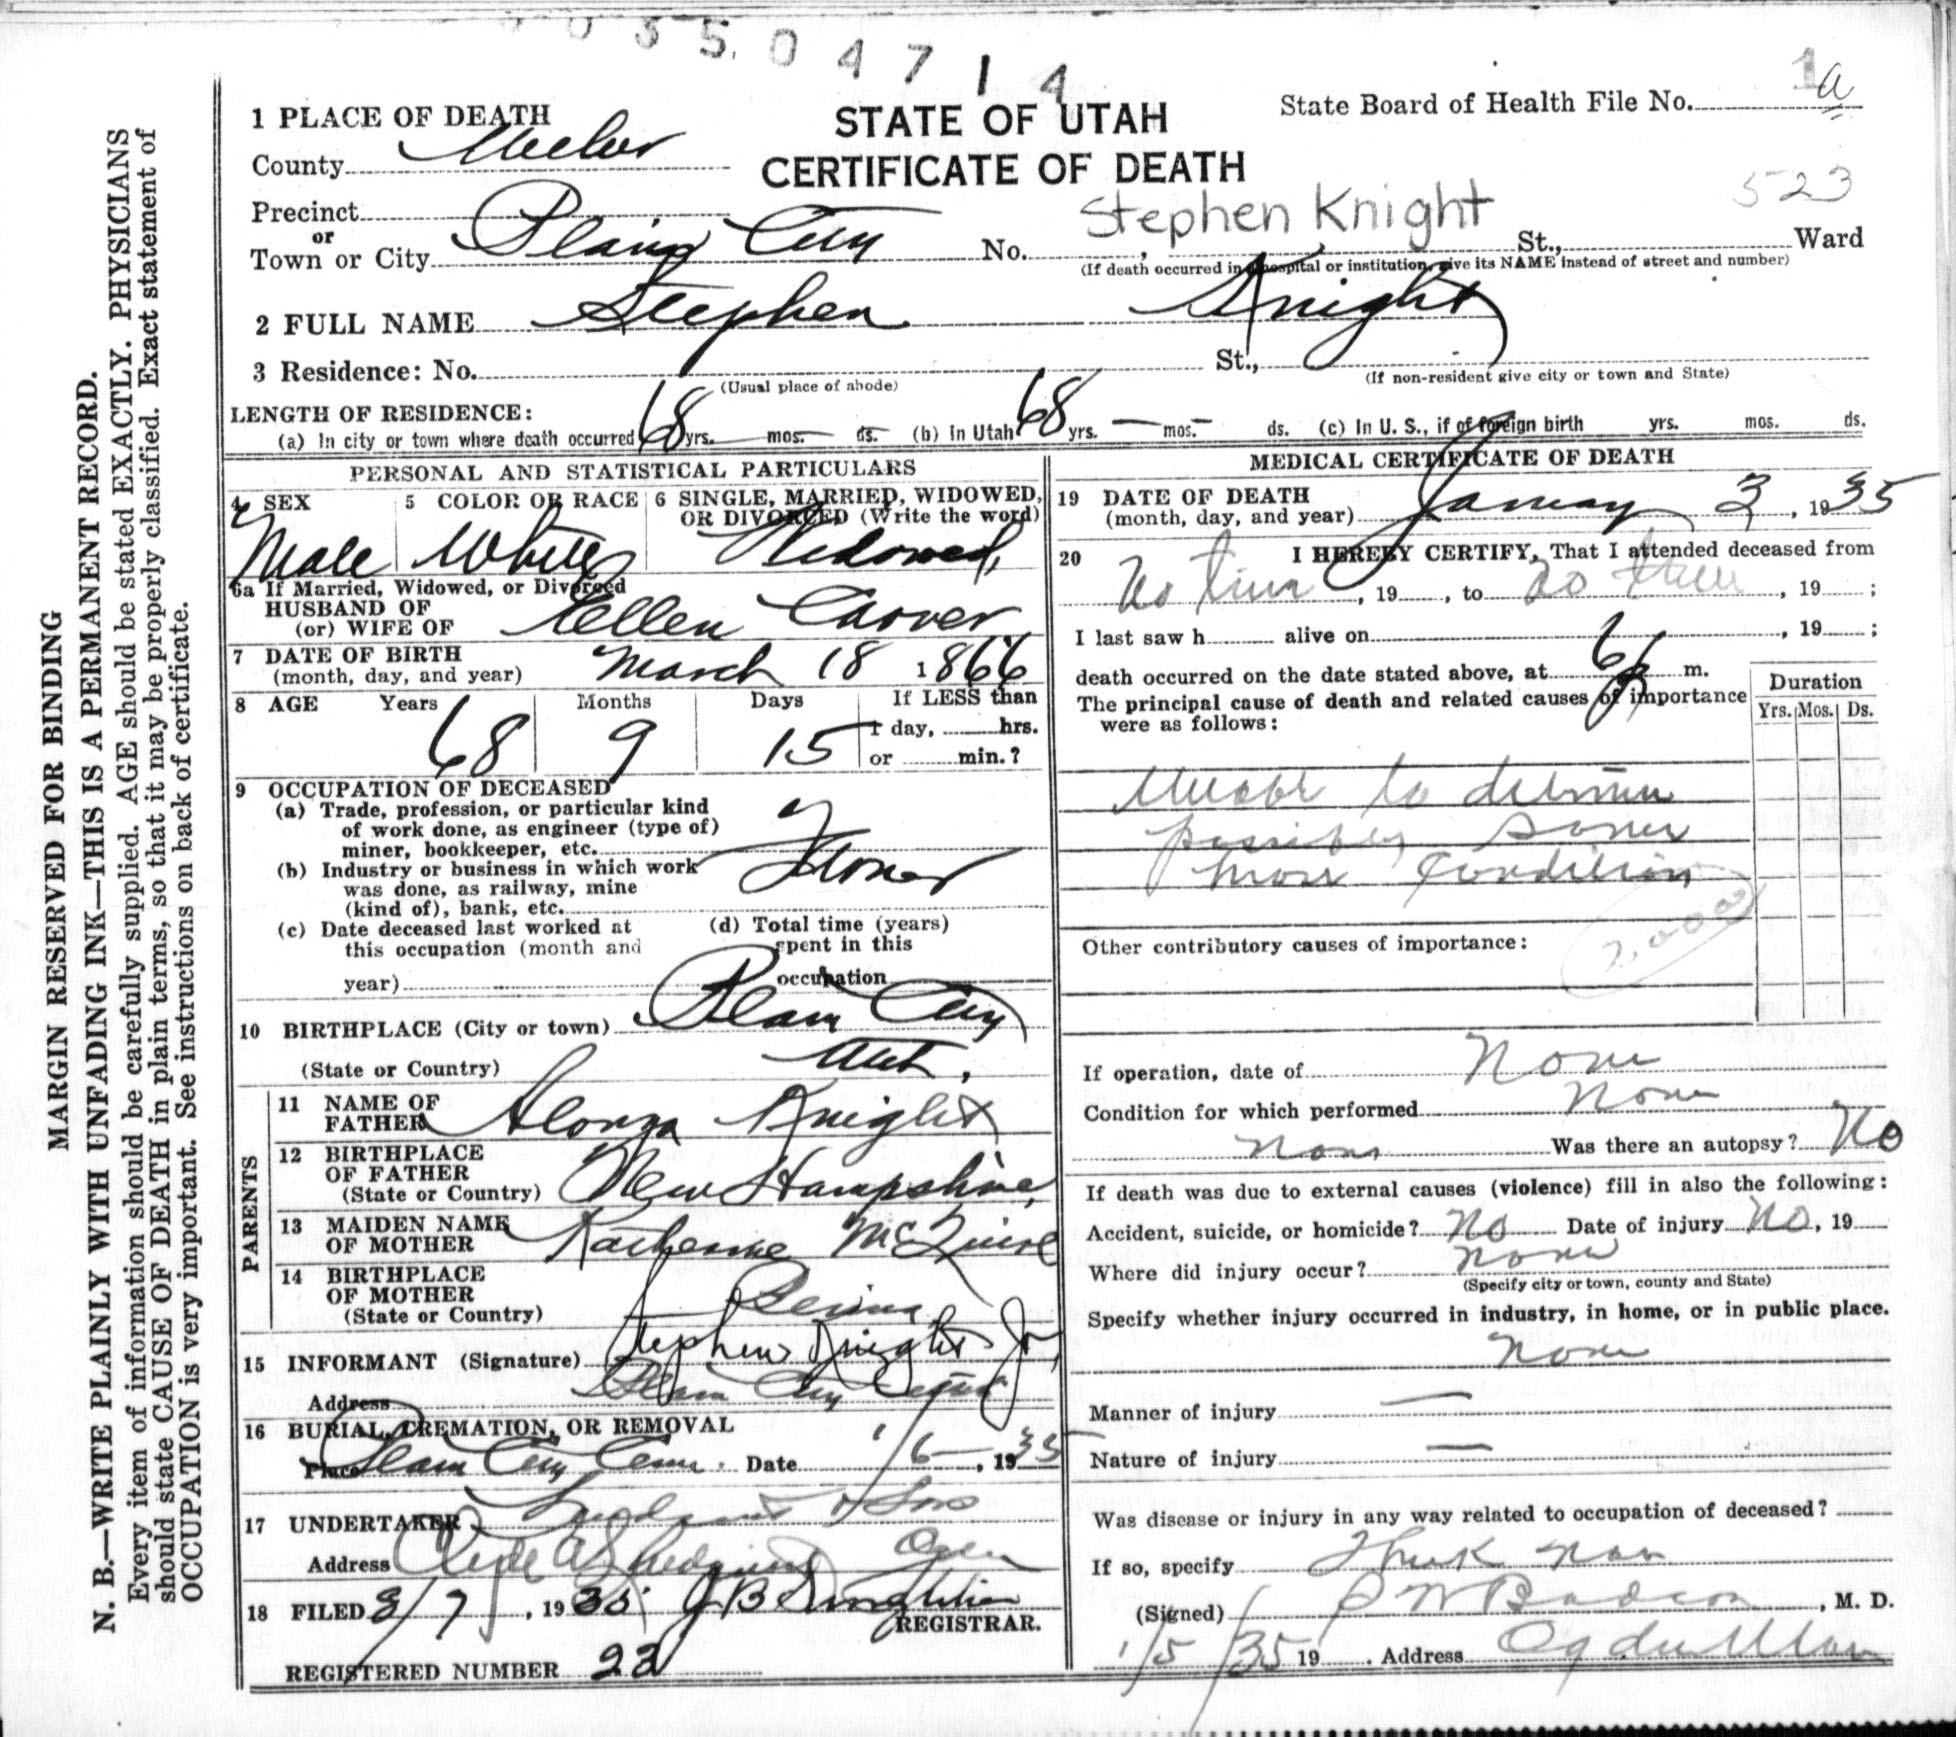 35 04714
1a
1 PLACE OF DEATH
STATE OF UTAH
State Board of Health File No.
County Weber
CERTIFICATE OF DEATH
523
Precinct
or
Stephen Knight
Town or City Plain City No. , St., Ward
(If death occurred in a hospital or institution, give its NAME instead of street and number)
2 FULL NAME Stephen Knight
3 Residence: No. St.,
(Usual place of abode) (If non-resident give city or town and State)
LENGTH OF RESIDENCE:
(a) In city or town where death occurred 68 yrs. — mos. — ds. (b) in Utah 68 yrs. — mos. — ds. (c) In U. S., if of foreign birth yrs. mos. ds.
PERSONAL AND STATISTICAL PARTICULARS
4 SEX 5 COLOR OR RACE 6 SINGLE, MARRIED, WIDOWED, OR DIVORCED (Write the word)
Male White Widowed
6a If Married, Widowed, or Divorced
HUSBAND OF
(or) WIFE OF Ellen Carver
7 DATE OF BIRTH
(month, day, and year) March 18 1866
8 AGE Years Months Days If LESS than
1 day, hrs.
68 9 15 or min.?
9 OCCUPATION OF DECEASED
(a) Trade, profession, or particular kind
of work done, as engineer (type of)
miner, bookkeeper, etc.
(b) Industry or business in which work
was done, as railway, mine
(kind of), bank, etc.
(c) Date deceased last worked at
this occupation (month and
year)
(d) Total time (years)
spent in this
occupation
10 BIRTHPLACE (City or town) Plain City
(State or Country) Utah,
PARENTS
11 NAME OF
FATHER Alonza Knight
12 BIRTHPLACE
OF FATHER
(State or Country) New Hampshire,
13 MAIDEN NAME
OF MOTHER Katherine McGuire
14 BIRTHPLACE
OF MOTHER
(State or Country)
15 INFORMANT (Signature) Stephen Knight Jr,
Address Plain City Utah
16 BURIAL, CREMATION, OR REMOVAL
Place Plain City Cem. Date 1/6 —, 1935
17 UNDERTAKER & Sons
Address Ogden
18 FILED 8/7, 1935
REGISTRAR.
REGISTERED NUMBER 23
MEDICAL CERTIFICATE OF DEATH
19 DATE OF DEATH
(month, day, and year) January 3, 1935
20 I HEREBY CERTIFY, That I attended deceased from
No time, 19 , to No time, 19 ;
I last saw h alive on , 19 ;
death occurred on the date stated above, at 6 P m.
The principal cause of death and related causes of importance
were as follows:
Duration
Yrs. Mos. Ds.
possibly some
condition
200a
Other contributory causes of importance:
If operation, date of None
Condition for which performed None
None Was there an autopsy? No
If death was due to external causes (violence) fill in also the following:
Accident, suicide, or homicide? No Date of injury No, 19
Where did injury occur? None
(Specify city or town, county and State)
Specify whether injury occurred in industry, in home, or in public place.
None
Manner of injury —
Nature of injury —
Was disease or injury in any way related to occupation of deceased?
If so, specify Think not
(Signed) , M. D.
1/5/35 19 . Address Ogden Utah
MARGIN RESERVED FOR BINDING
N. B.—WRITE PLAINLY WITH UNFADING INK—THIS IS A PERMANENT RECORD.
Every item of information should be carefully supplied. AGE should be stated EXACTLY. PHYSICIANS
should state CAUSE OF DEATH in plain terms, so that it may be properly classified. Exact statement of
OCCUPATION is very important. See instructions on back of certificate.